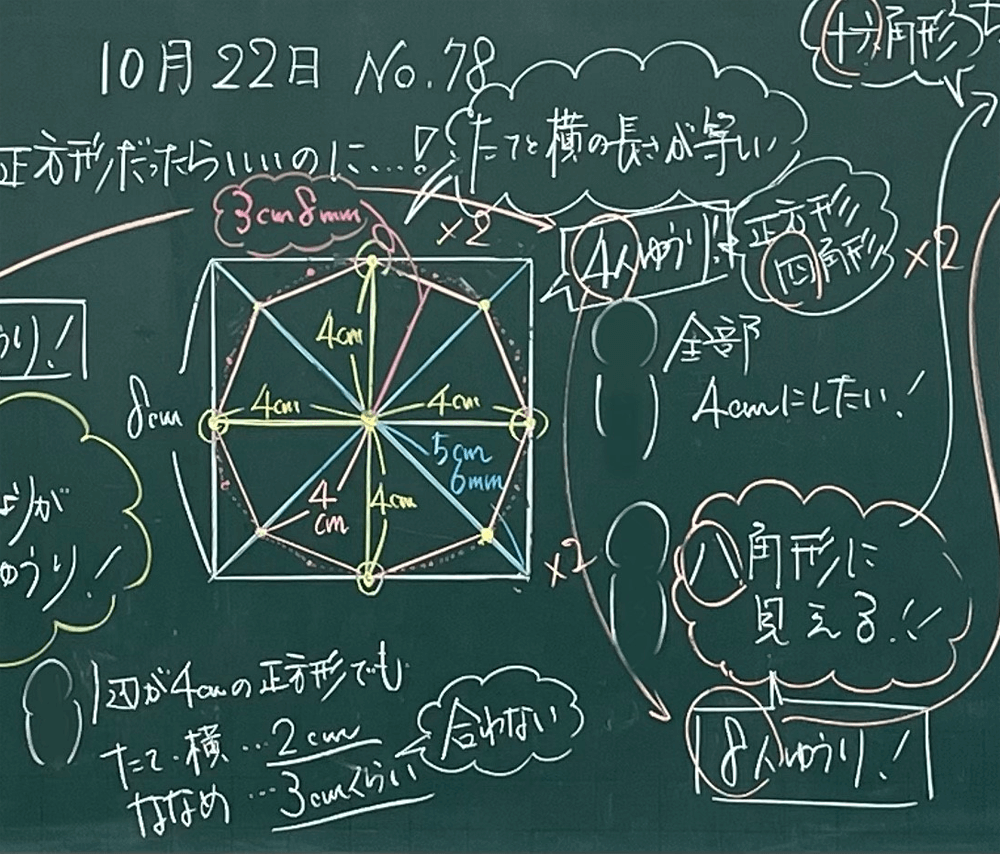 10月22日 No.78
十六角形
正方形だったらいいのに…!
たてと横の長さが等しい
3cm8mm
×2
4人ゆうり!
正方形
四角形
×2
うり!
全部
4cmにしたい!
8cm
4cm
4cm
4cm
5cm
6mm
4
cm
4cm
が
ゆうり!
×2
八角形に
見える!!
8人ゆうり!
1辺が4cmの正方形でも
たて・横…2cm
ななめ…3cmくらい
合わない